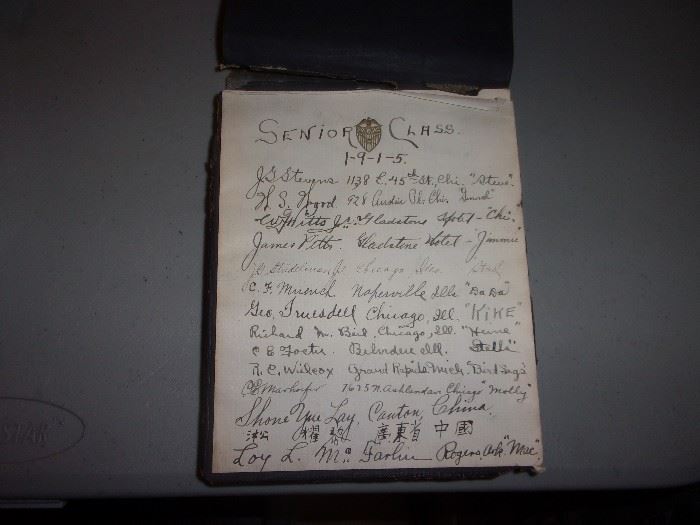 SENIOR CLASS.
1-9-1-5.
J.G. Stevens 1138 E. 45th St., Chi. "Steve".
H. S. Wood 928 Chi.
Pitts Jr. Gladstone Hotel - "Chi."
James Pitts. Gladstone Hotel - "Jimmie"
Jr. Chicago Ills.
C. F. Muench Naperville Ills "Da Da"
Geo. Truesdell Chicago, Ill. "KIKE"
Richard M. Chicago, Ill. "Heinie"
C E Foster Belvidere Ill.
R. C. Willcox Grand Rapids Mich.
C.E. 7625 N. Ashland av Chicago "Molly"
Shone Yue Lay, Canton, China.
廣東省 中國
Loy L. Mc Farlin Rogers, Ark. "Mac".